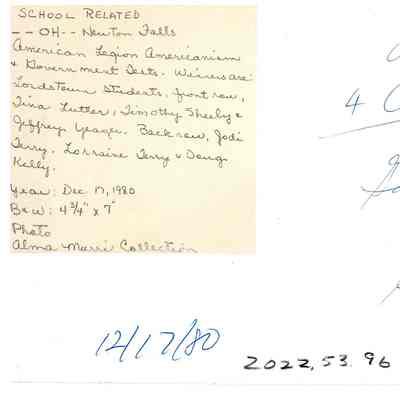 SCHOOL RELATED
-- OH -- Newton Falls
American Legion Americanism
& Government Tests. Winners are:
Lordstown Students, front row,
Tina Lutter, Timothy Sheely &
Jeffrey Yeager. Back row, Jodi
Terry, Lorraine Terry & Doug
Kelly.
Year: Dec 17, 1980
B&W: 4 3/4" x 7"
Photo
Alma Marri Collection
4
12/17/80
2022.53.96